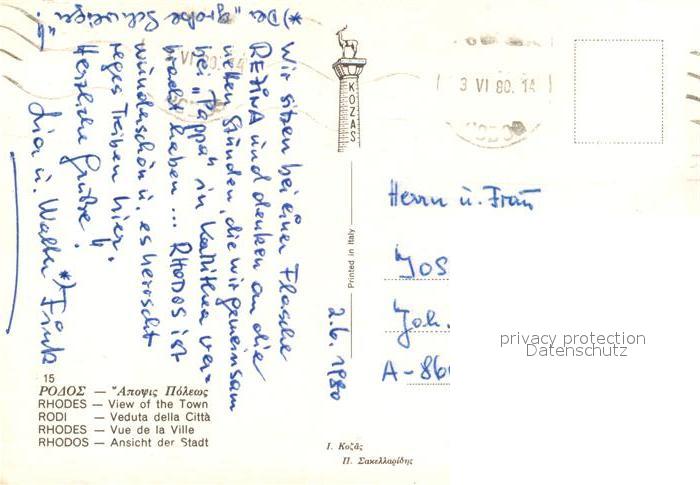 Wir sitzen bei einer Flasche
REZINA und denken an die
netten Stunden, die wir gemeinsam
bei „Pappa“ in Kallithea ver-
bracht haben ... RHODOS ist
wunderschön u. es herrscht
reges Treiben hier.
Herzliche Grüße!
Lia u. Walter *) Frink
*) Der „große Schweiger“!
2.6.1980
KOZAS
Printed in Italy
3 VI 80. 14
Herrn u. Frau
Jos
Joh.
A-86
privacy protection
Datenschutz
15
ΡΟΔΟΣ — Ἄποψις Πόλεως
RHODES — View of the Town
RODI — Veduta della Città
RHODES — Vue de la Ville
RHODOS — Ansicht der Stadt
Ι. Κοζᾶς
Π. Σακελλαρίδης